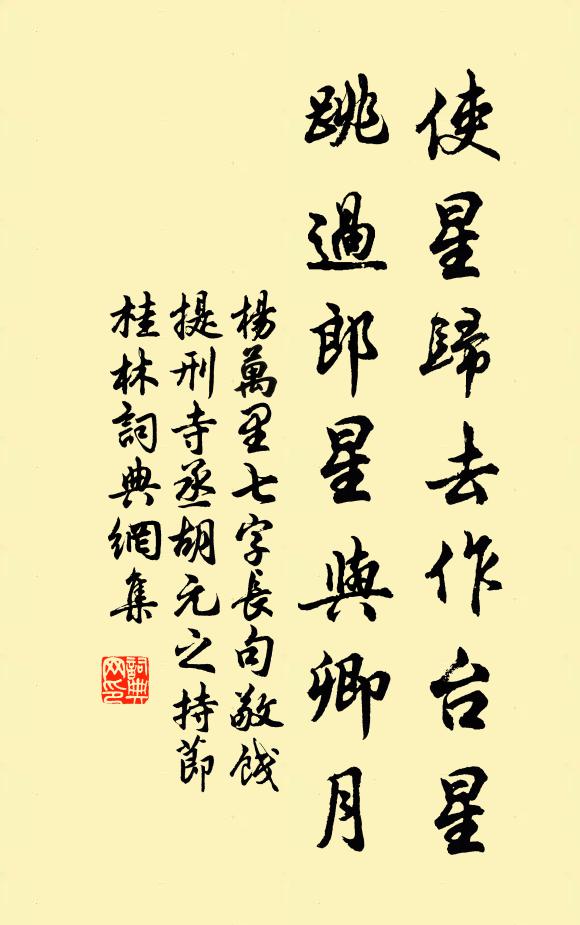 使星歸去作台星
跳過郎星與卿月
楊萬里七字長句敬餞
提刑寺丞胡元之持節
桂林詞典網集
詞典网印